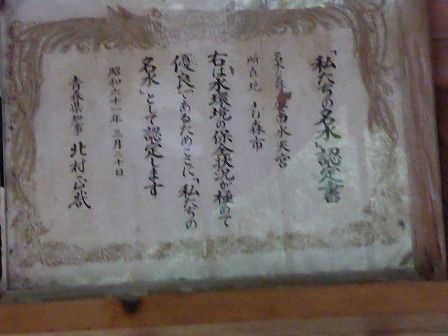 「私たちの名水」認定書
水天宮
所在地 青森市
右は水環境の保全状況が極めて
優良であるためここに「私たちの
名水」として認定します
昭和六十一年三月 十日
青森県知事 北村正哉